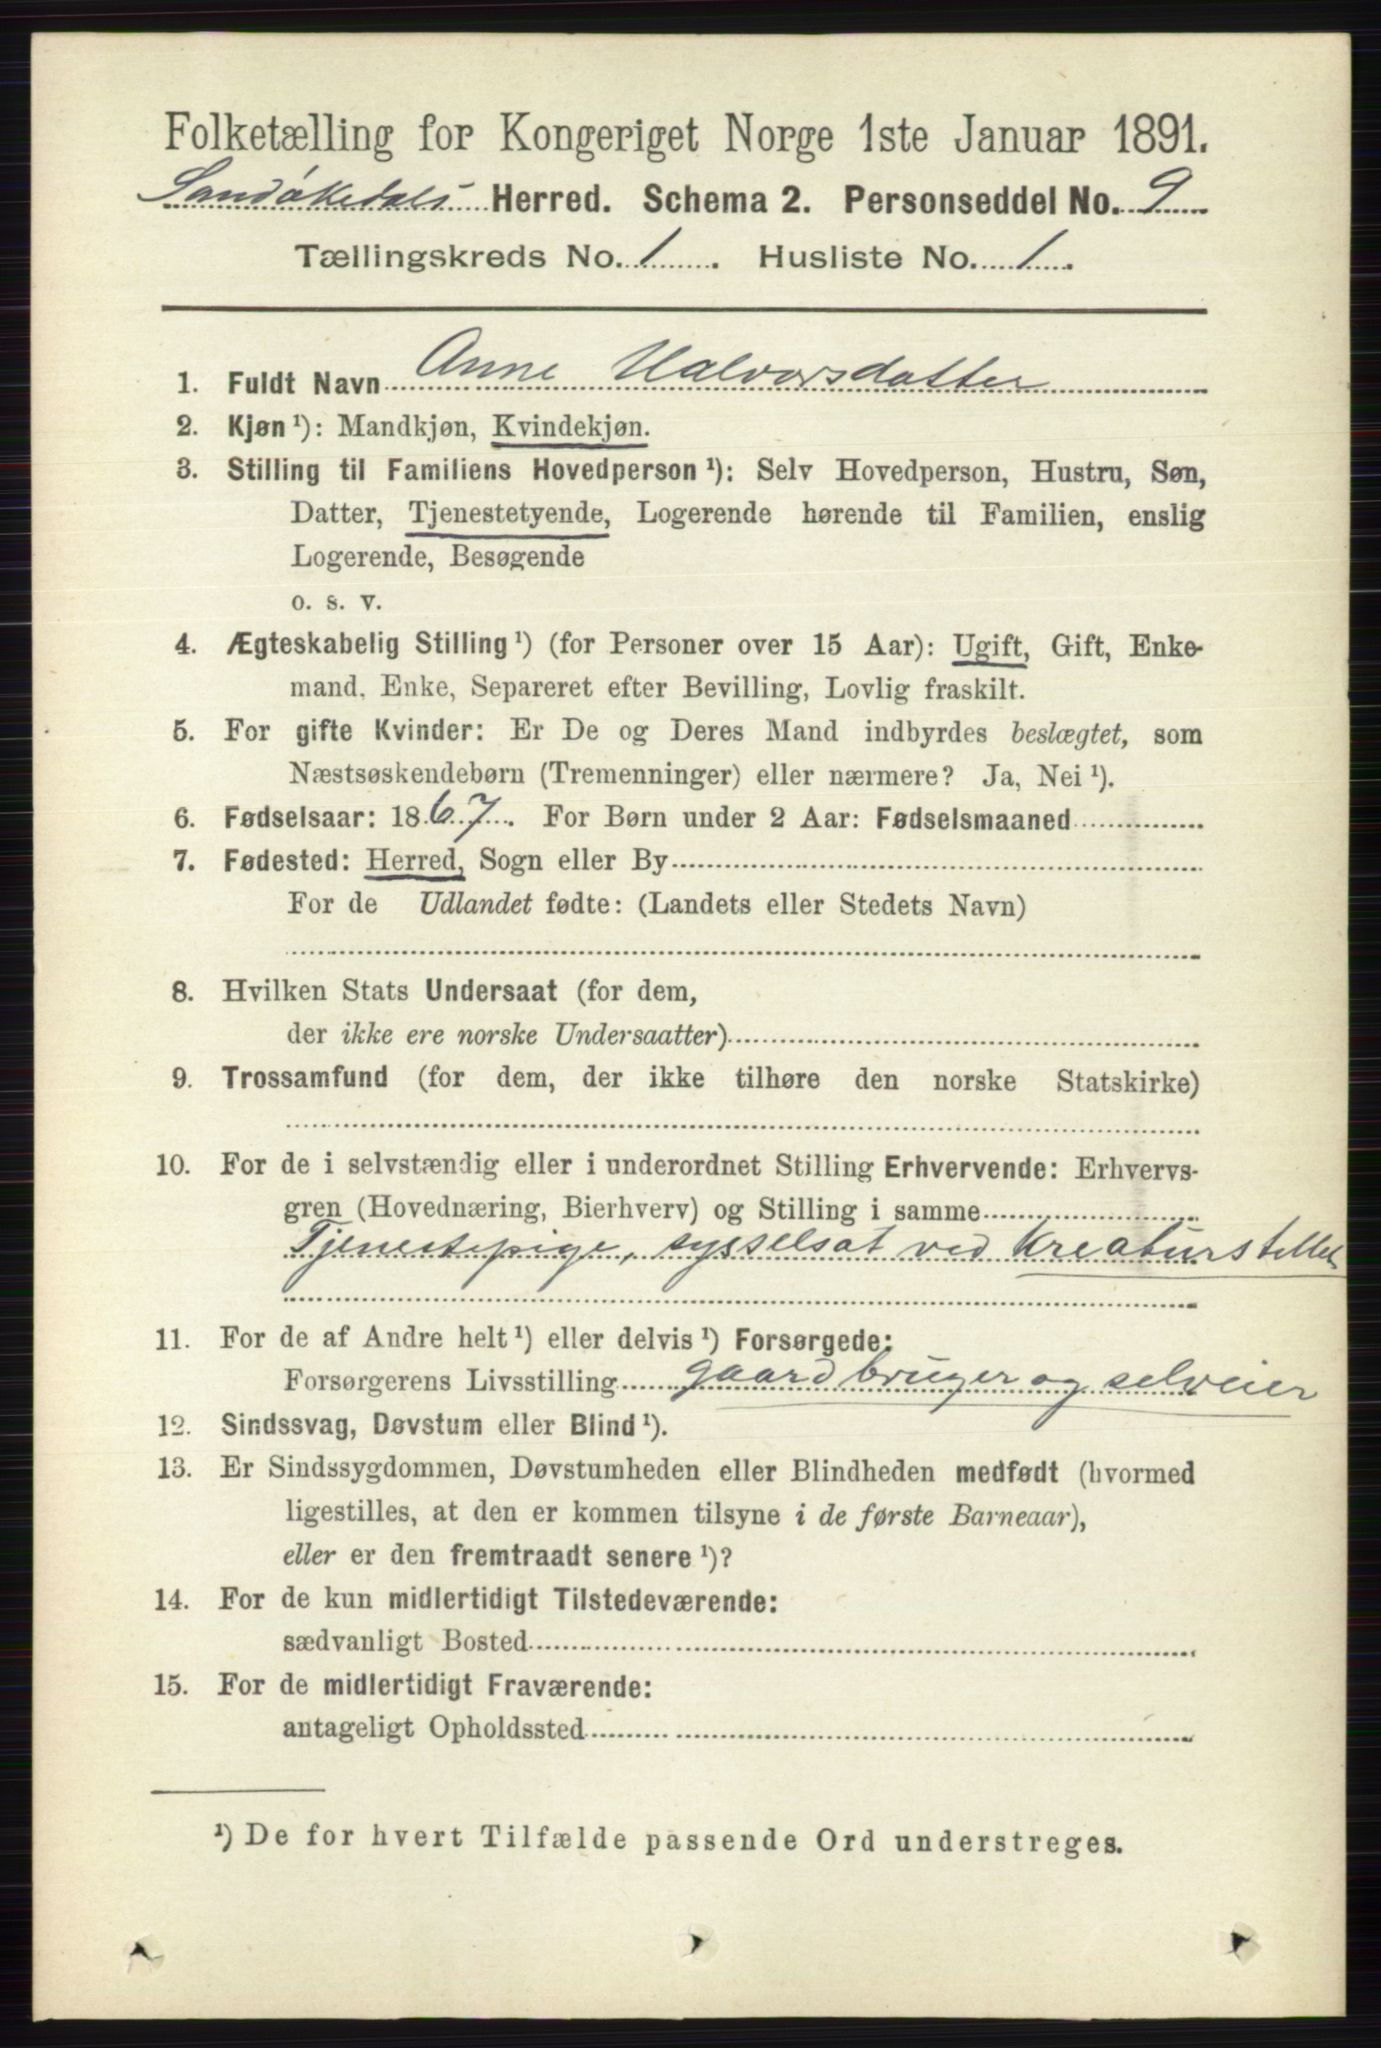 Folketælling for Kongeriget Norge 1ste Januar 1891.
Sandøkedals Herred. Schema 2. Personseddel No. 9
Tællingskreds No. 1. Husliste No. 1.
1. Fuldt Navn Anne Halvorsdatter
2. Kjøn ¹): Mandkjøn, Kvindekjøn.
3. Stilling til Familiens Hovedperson ¹): Selv Hovedperson, Hustru, Søn,
Datter, Tjenestetyende, Logerende hørende til Familien, enslig
Logerende, Besøgende
o. s. v.
4. Ægteskabelig Stilling ¹) (for Personer over 15 Aar): Ugift, Gift, Enke-
mand, Enke, Separeret efter Bevilling, Lovlig fraskilt.
5. For gifte Kvinder: Er De og Deres Mand indbyrdes beslægtet, som
Næstsøskendebørn (Tremenninger) eller nærmere? Ja, Nei ¹).
6. Fødselsaar: 1867. For Børn under 2 Aar: Fødselsmaaned
7. Fødested: Herred, Sogn eller By
For de Udlandet fødte: (Landets eller Stedets Navn)
8. Hvilken Stats Undersaat (for dem,
der ikke ere norske Undersaatter)
9. Trossamfund (for dem, der ikke tilhøre den norske Statskirke)
10. For de i selvstændig eller i underordnet Stilling Erhvervende: Erhvervs-
gren (Hovednæring, Bierhverv) og Stilling i samme
Tjenestepige, sysselsat ved Kreaturstellet
11. For de af Andre helt ¹) eller delvis ¹) Forsørgede:
Forsørgerens Livsstilling gaardbruger og selveier
12. Sindssvag, Døvstum eller Blind ¹).
13. Er Sindssygdommen, Døvstumheden eller Blindheden medfødt (hvormed
ligestilles, at den er kommen tilsyne i de første Barneaar),
eller er den fremtraadt senere ¹)?
14. For de kun midlertidigt Tilstedeværende:
sædvanligt Bosted
15. For de midlertidigt Fraværende:
antageligt Opholdssted
¹) De for hvert Tilfælde passende Ord understreges.